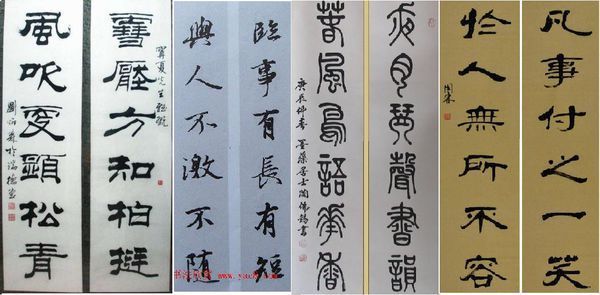 雪壓方知柏挺
風吹更顯松青
臨事有長有短
與人不激不隨
夜月琴聲書韻
春風鳥語花香
凡事付之一笑
於人無所不容